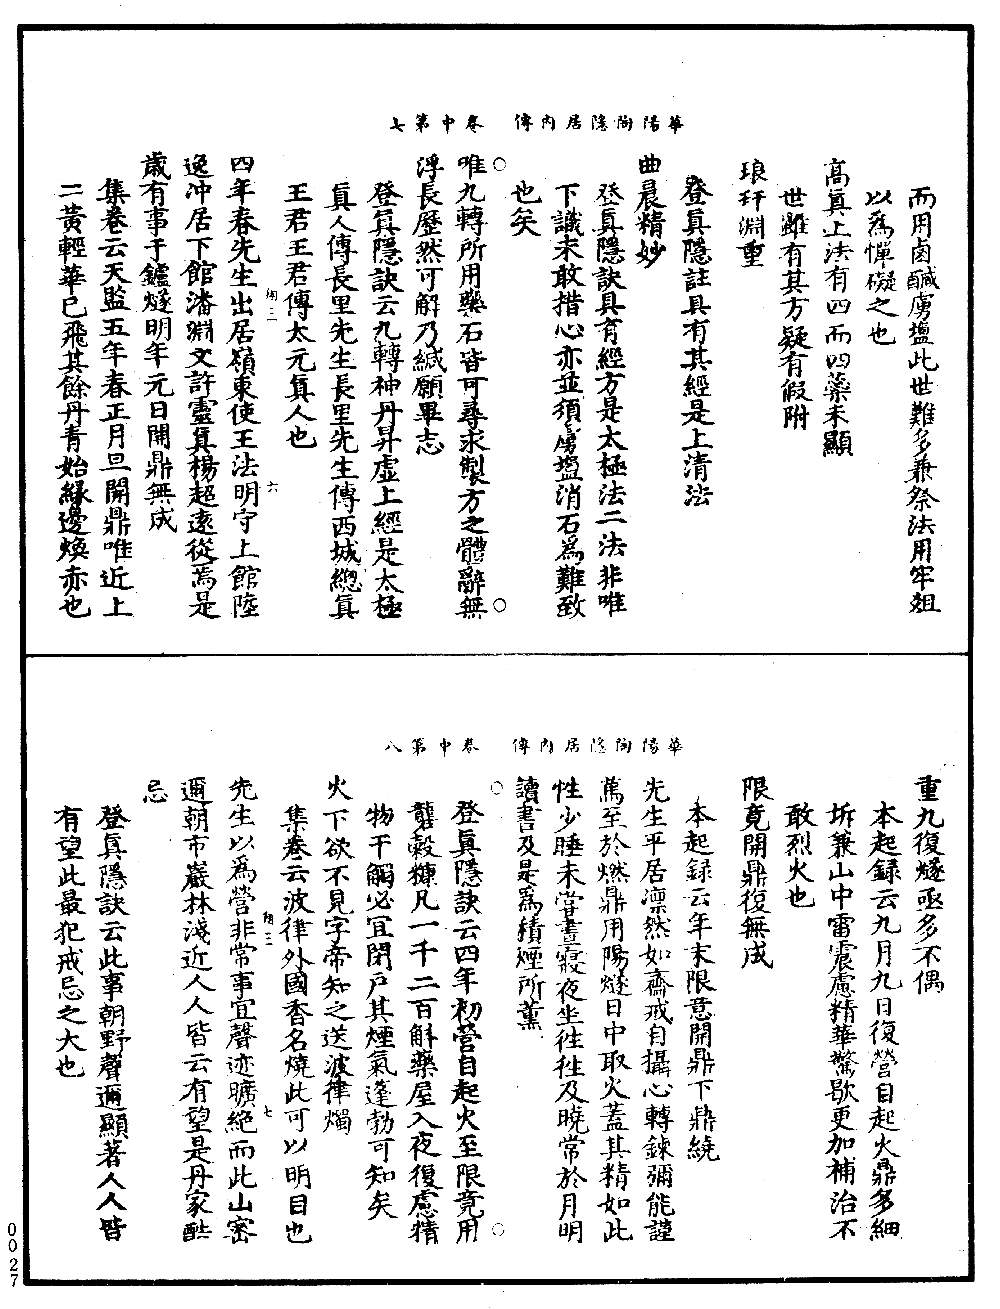 華陽陶隱居內傳　卷中第七
而用鹵鹹虜塩此世難多兼祭法用牢俎
以為憚礙之也
高真上法有四而四藥未顯
世雖有其方疑有假附
琅玕淵重
登真隱註具有其經是上清法
曲晨精妙
登真隱訣具有經方是太極法二法非唯
下識未敢措心亦並須虜塩消石為難致
也矣
唯九轉所用藥石皆可尋求製方之體辭無
浮長歷然可解乃緘願畢志
登真隱訣云九轉神丹昇虛上經是太極
真人傳長里先生長里先生傳西城總真
王君王君傳太元真人也
翔二
六
四年春先生出居嶺東使王法明守上館陸
逸冲居下館潘淵文許靈真楊超遠從焉是
歲有事于鑪燧明年元日開鼎無成
集卷云天監五年春正月旦開鼎唯近上
二黃輕華已飛其餘丹青始緣邊煥赤也
華陽陶隱居內傳　卷中第八
重九復燧亟多不偶
本起録云九月九日復營自起火鼎多細
坼兼山中雷震慮精華驚歇更加補治不
敢烈火也
限竟開鼎復無成
本起録云年末限意開鼎下鼎繞
先生平居凛然如齋戒自攝心轉鍊彌能謹
萬至於燃鼎用陽燧日中取火蓋其精如此
性少睡未嘗晝寢夜坐往往及曉常於月明
讀書及是為積煙所薰
登真隱訣云四年初營自起火至限竟用
礱穀糠凡一千二百斛藥屋入夜復慮精
物干觸必宜閉戶其煙氣蓬勃可知矣
火下欲不見字帝知之送波律燭
集卷云波律外國香名燒此可以明目也
翔三
七
先生以為營非常事宜聲迹曠絶而此山密
邇朝市巖林淺近人人皆云有望是丹家酷
忌
登真隱訣云此事朝野聲邇顯著人人皆
有望此最犯戒忌之大也
0027